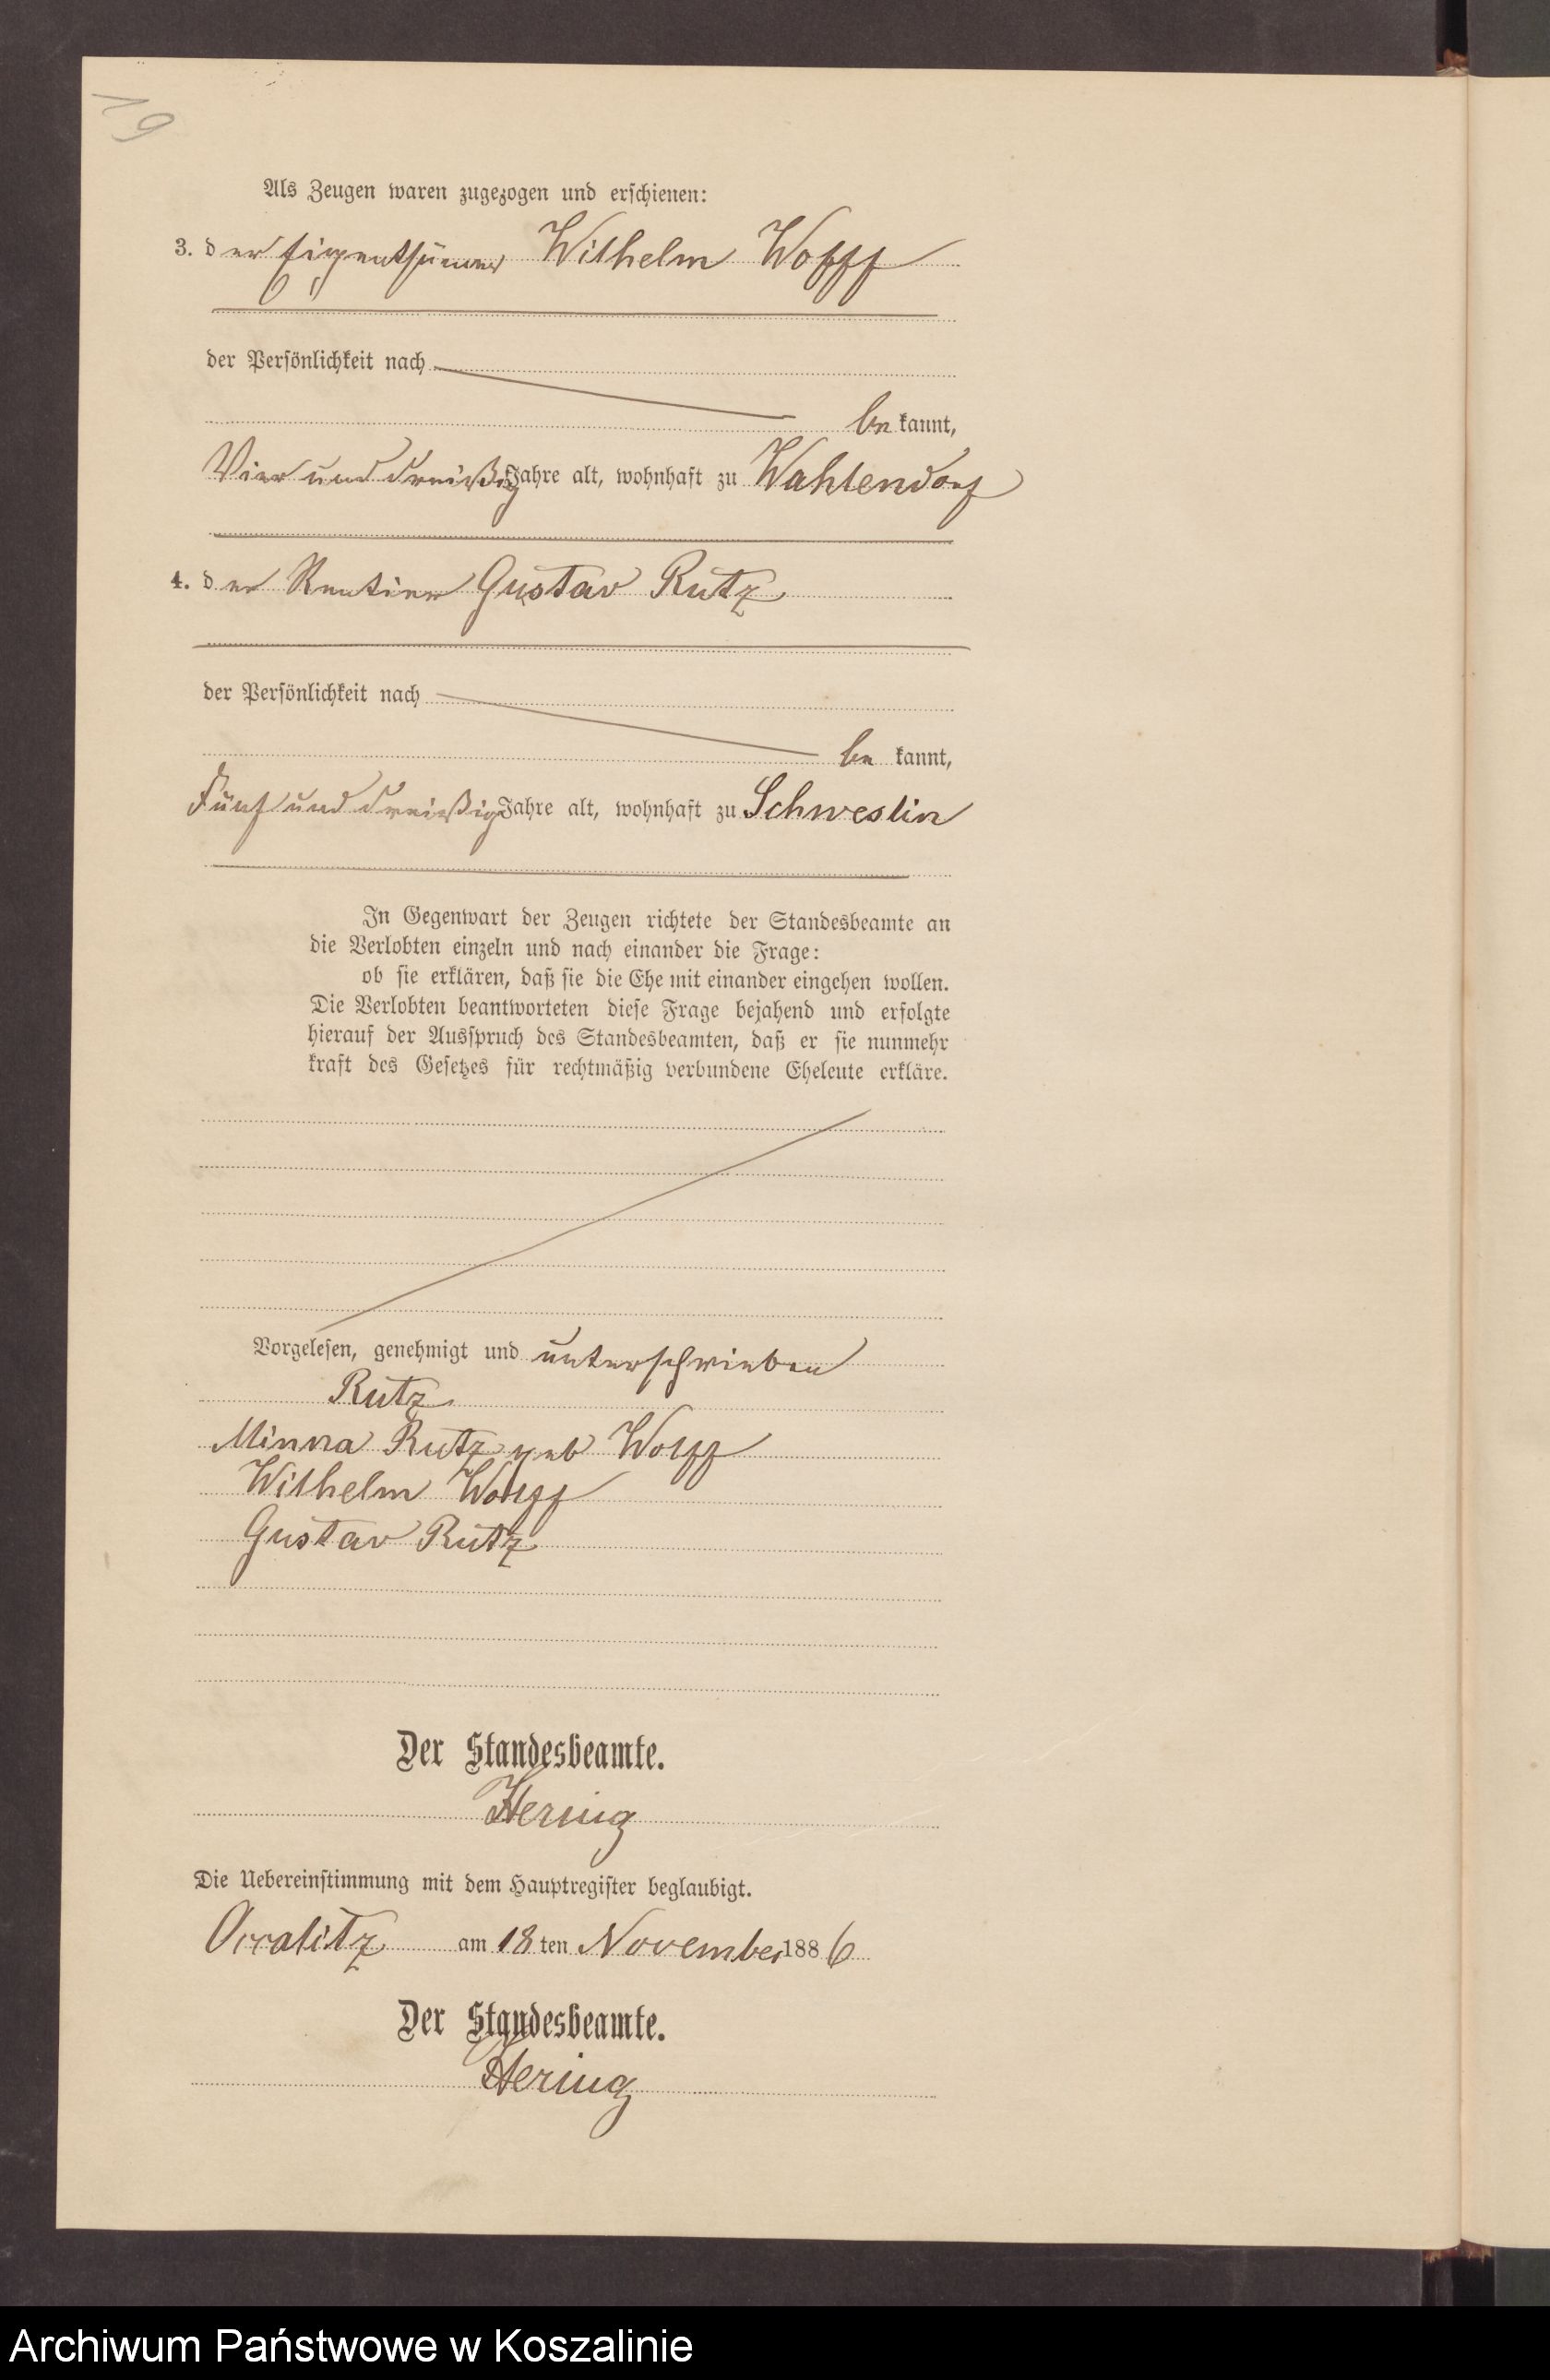 19
Als Zeugen waren zugezogen und erschienen:
3. der Eigenthümer Wilhelm Wolff
der Persönlichkeit nach
be kannt,
Vier und dreißig Jahre alt, wohnhaft zu Wahlendorf
4. der Rentier Gustav Rutz
der Persönlichkeit nach
be kannt,
Fünf und dreißig Jahre alt, wohnhaft zu Schweslin
In Gegenwart der Zeugen richtete der Standesbeamte an
die Verlobten einzeln und nach einander die Frage:
ob sie erklären, daß sie die Ehe mit einander eingehen wollen.
Die Verlobten beantworteten diese Frage bejahend und erfolgte
hierauf der Ausspruch des Standesbeamten, daß er sie nunmehr
kraft des Gesetzes für rechtmäßig verbundene Eheleute erkläre.
Vorgelesen, genehmigt und unterschrieben
Rutz
Minna Rutz geb Wolff
Wilhelm Wolff
Gustav Rutz
Der Standesbeamte.
Hering
Die Uebereinstimmung mit dem Hauptregister beglaubigt.
am 18 ten November 1886
Der Standesbeamte.
Hering
Archiwum Państwowe w Koszalinie